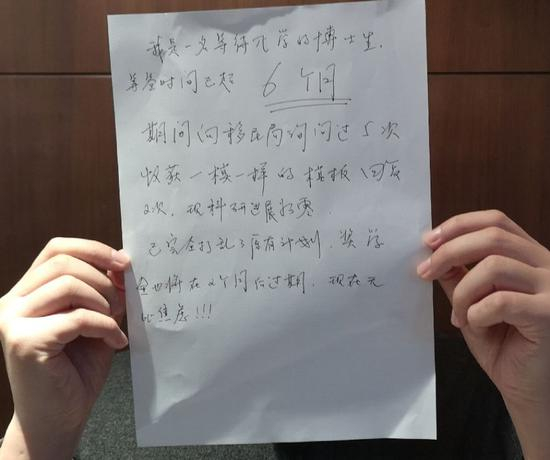 我是一名等待入学的博士生,
等签时间已超 6个月
期间向移民局询问过5次
收获一模一样的模板回复
2次. 现科研进展为零.
已完全打乱了原有计划, 奖学
金也将在2个月后过期. 现在无
比焦虑!!!